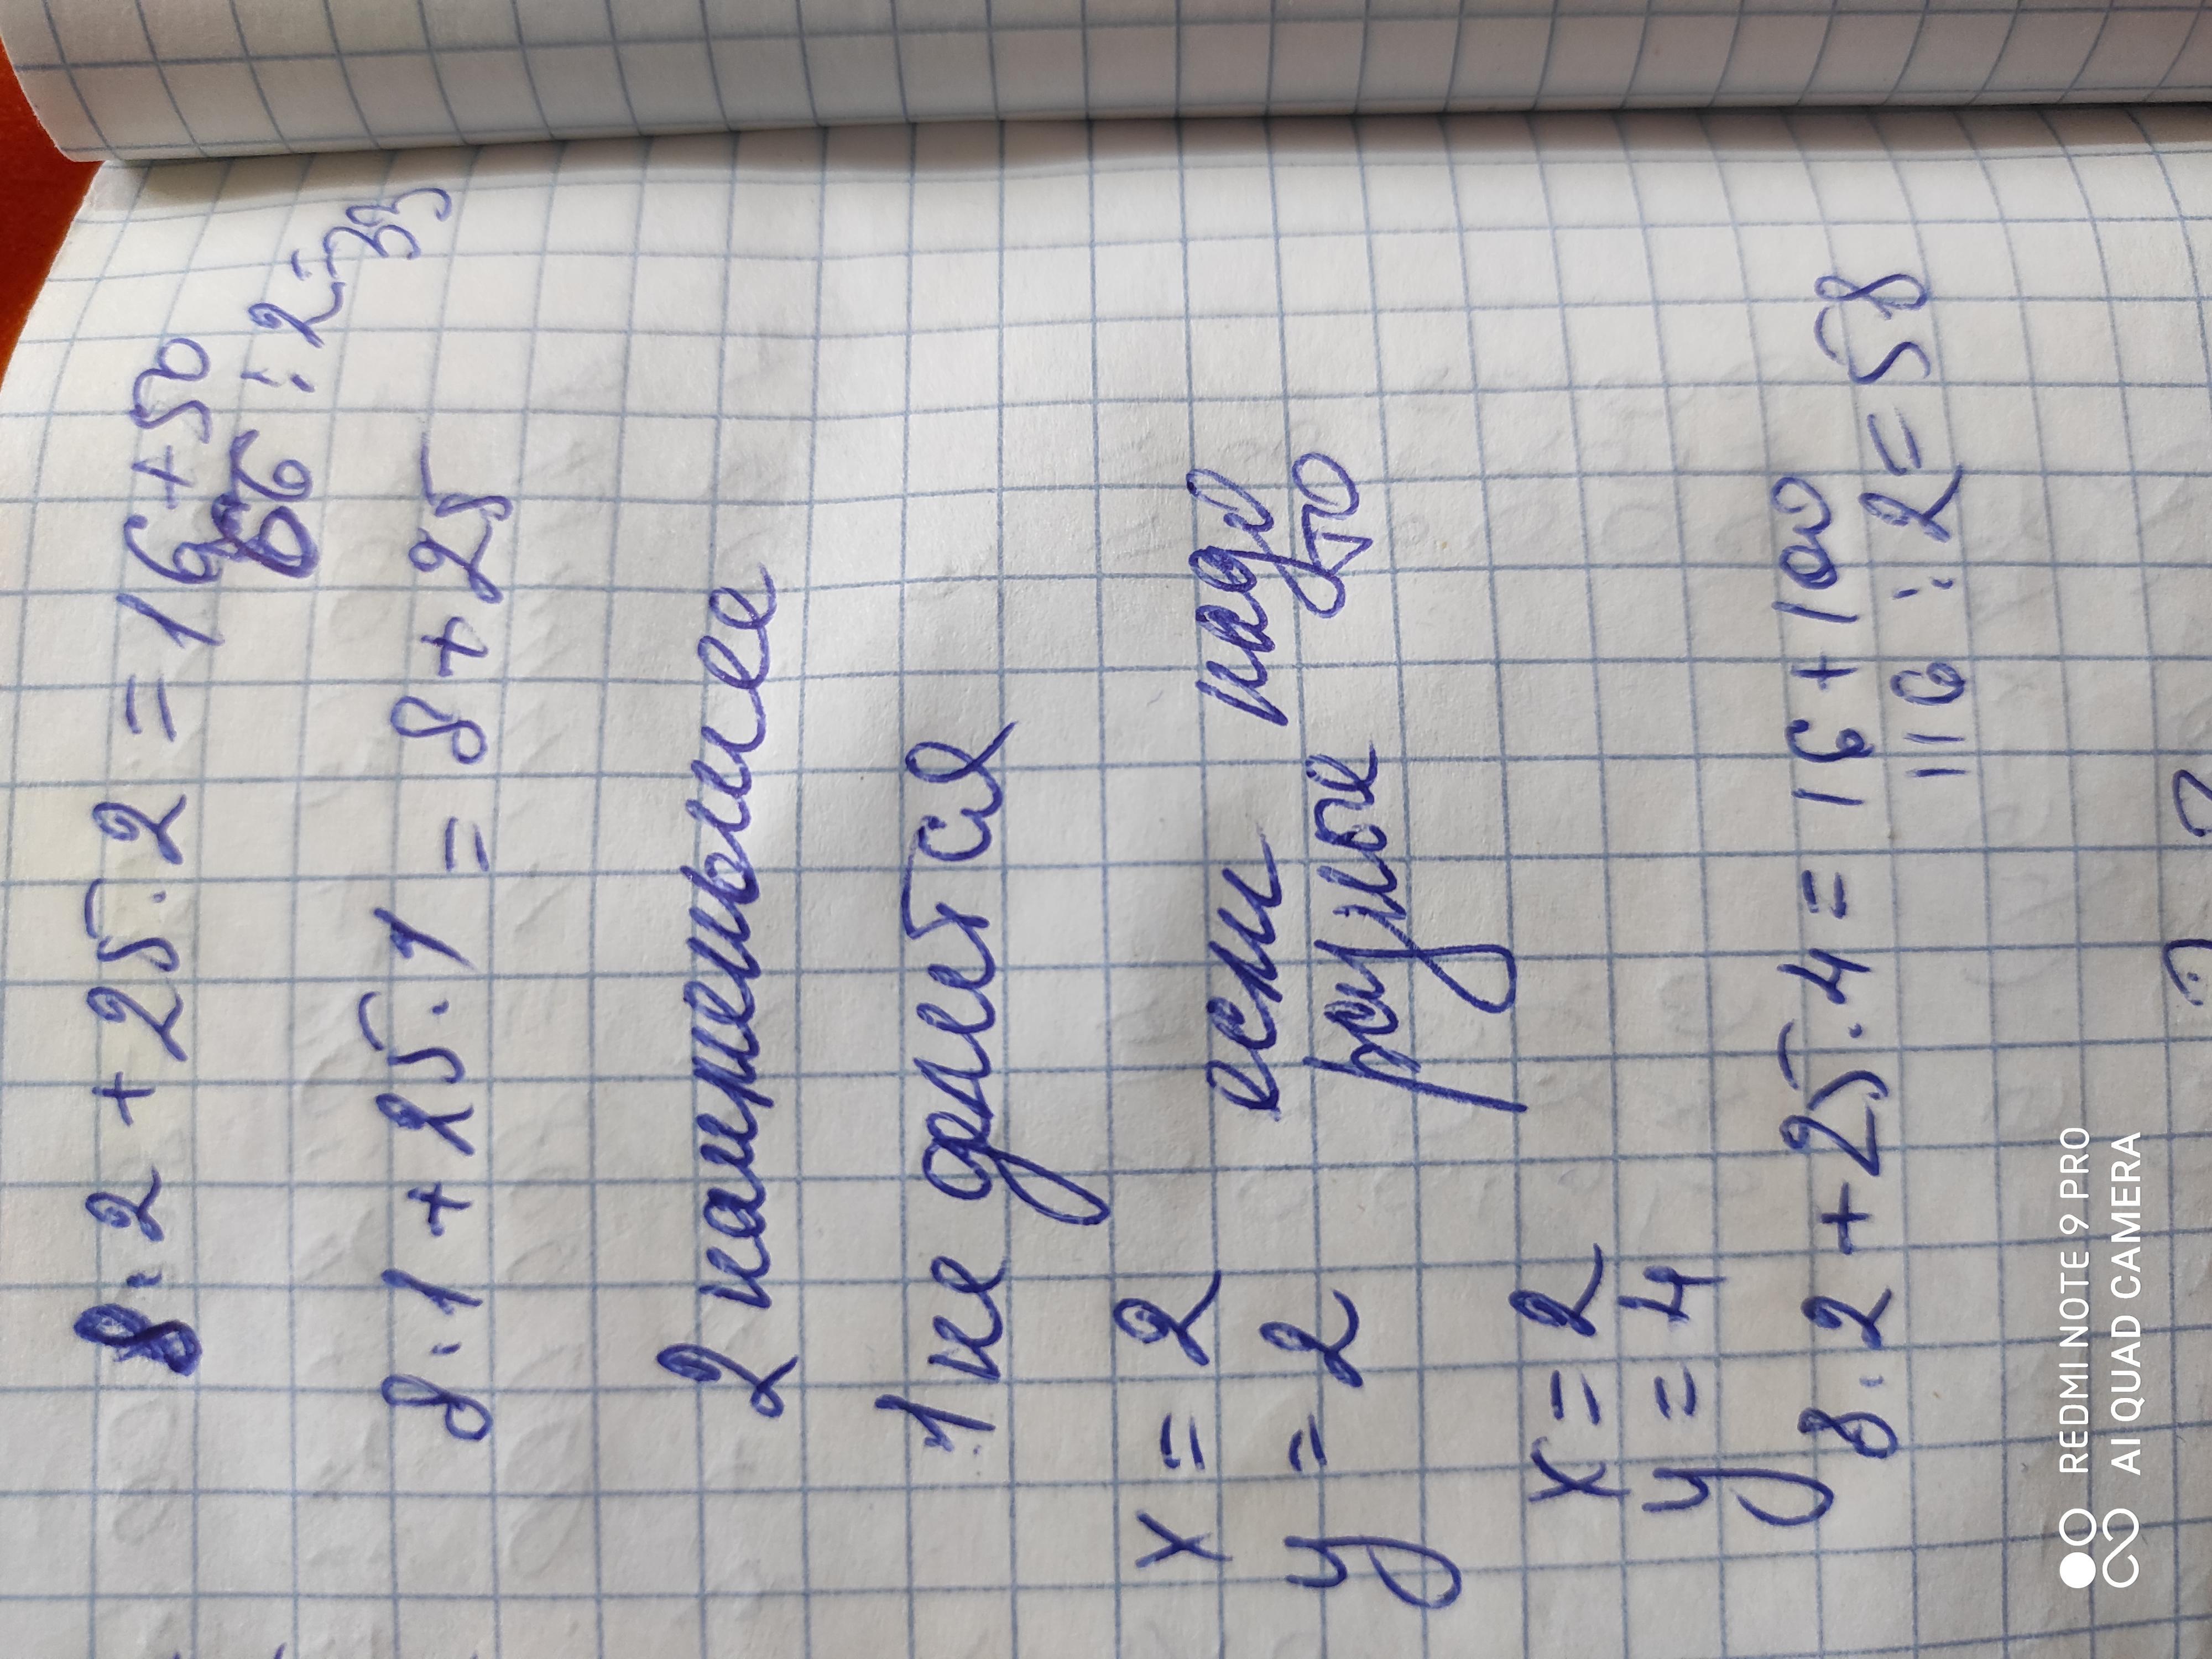 8·2+25·2=16+50
66:2=33
8·1+25·1=8+25
2 наименьшее
1 не делится
x=2 если надо
y=2 разные то
x=2
y=4
8·2+25·4=16+100
116:2=58
REDMI NOTE 9 PRO
AI QUAD CAMERA